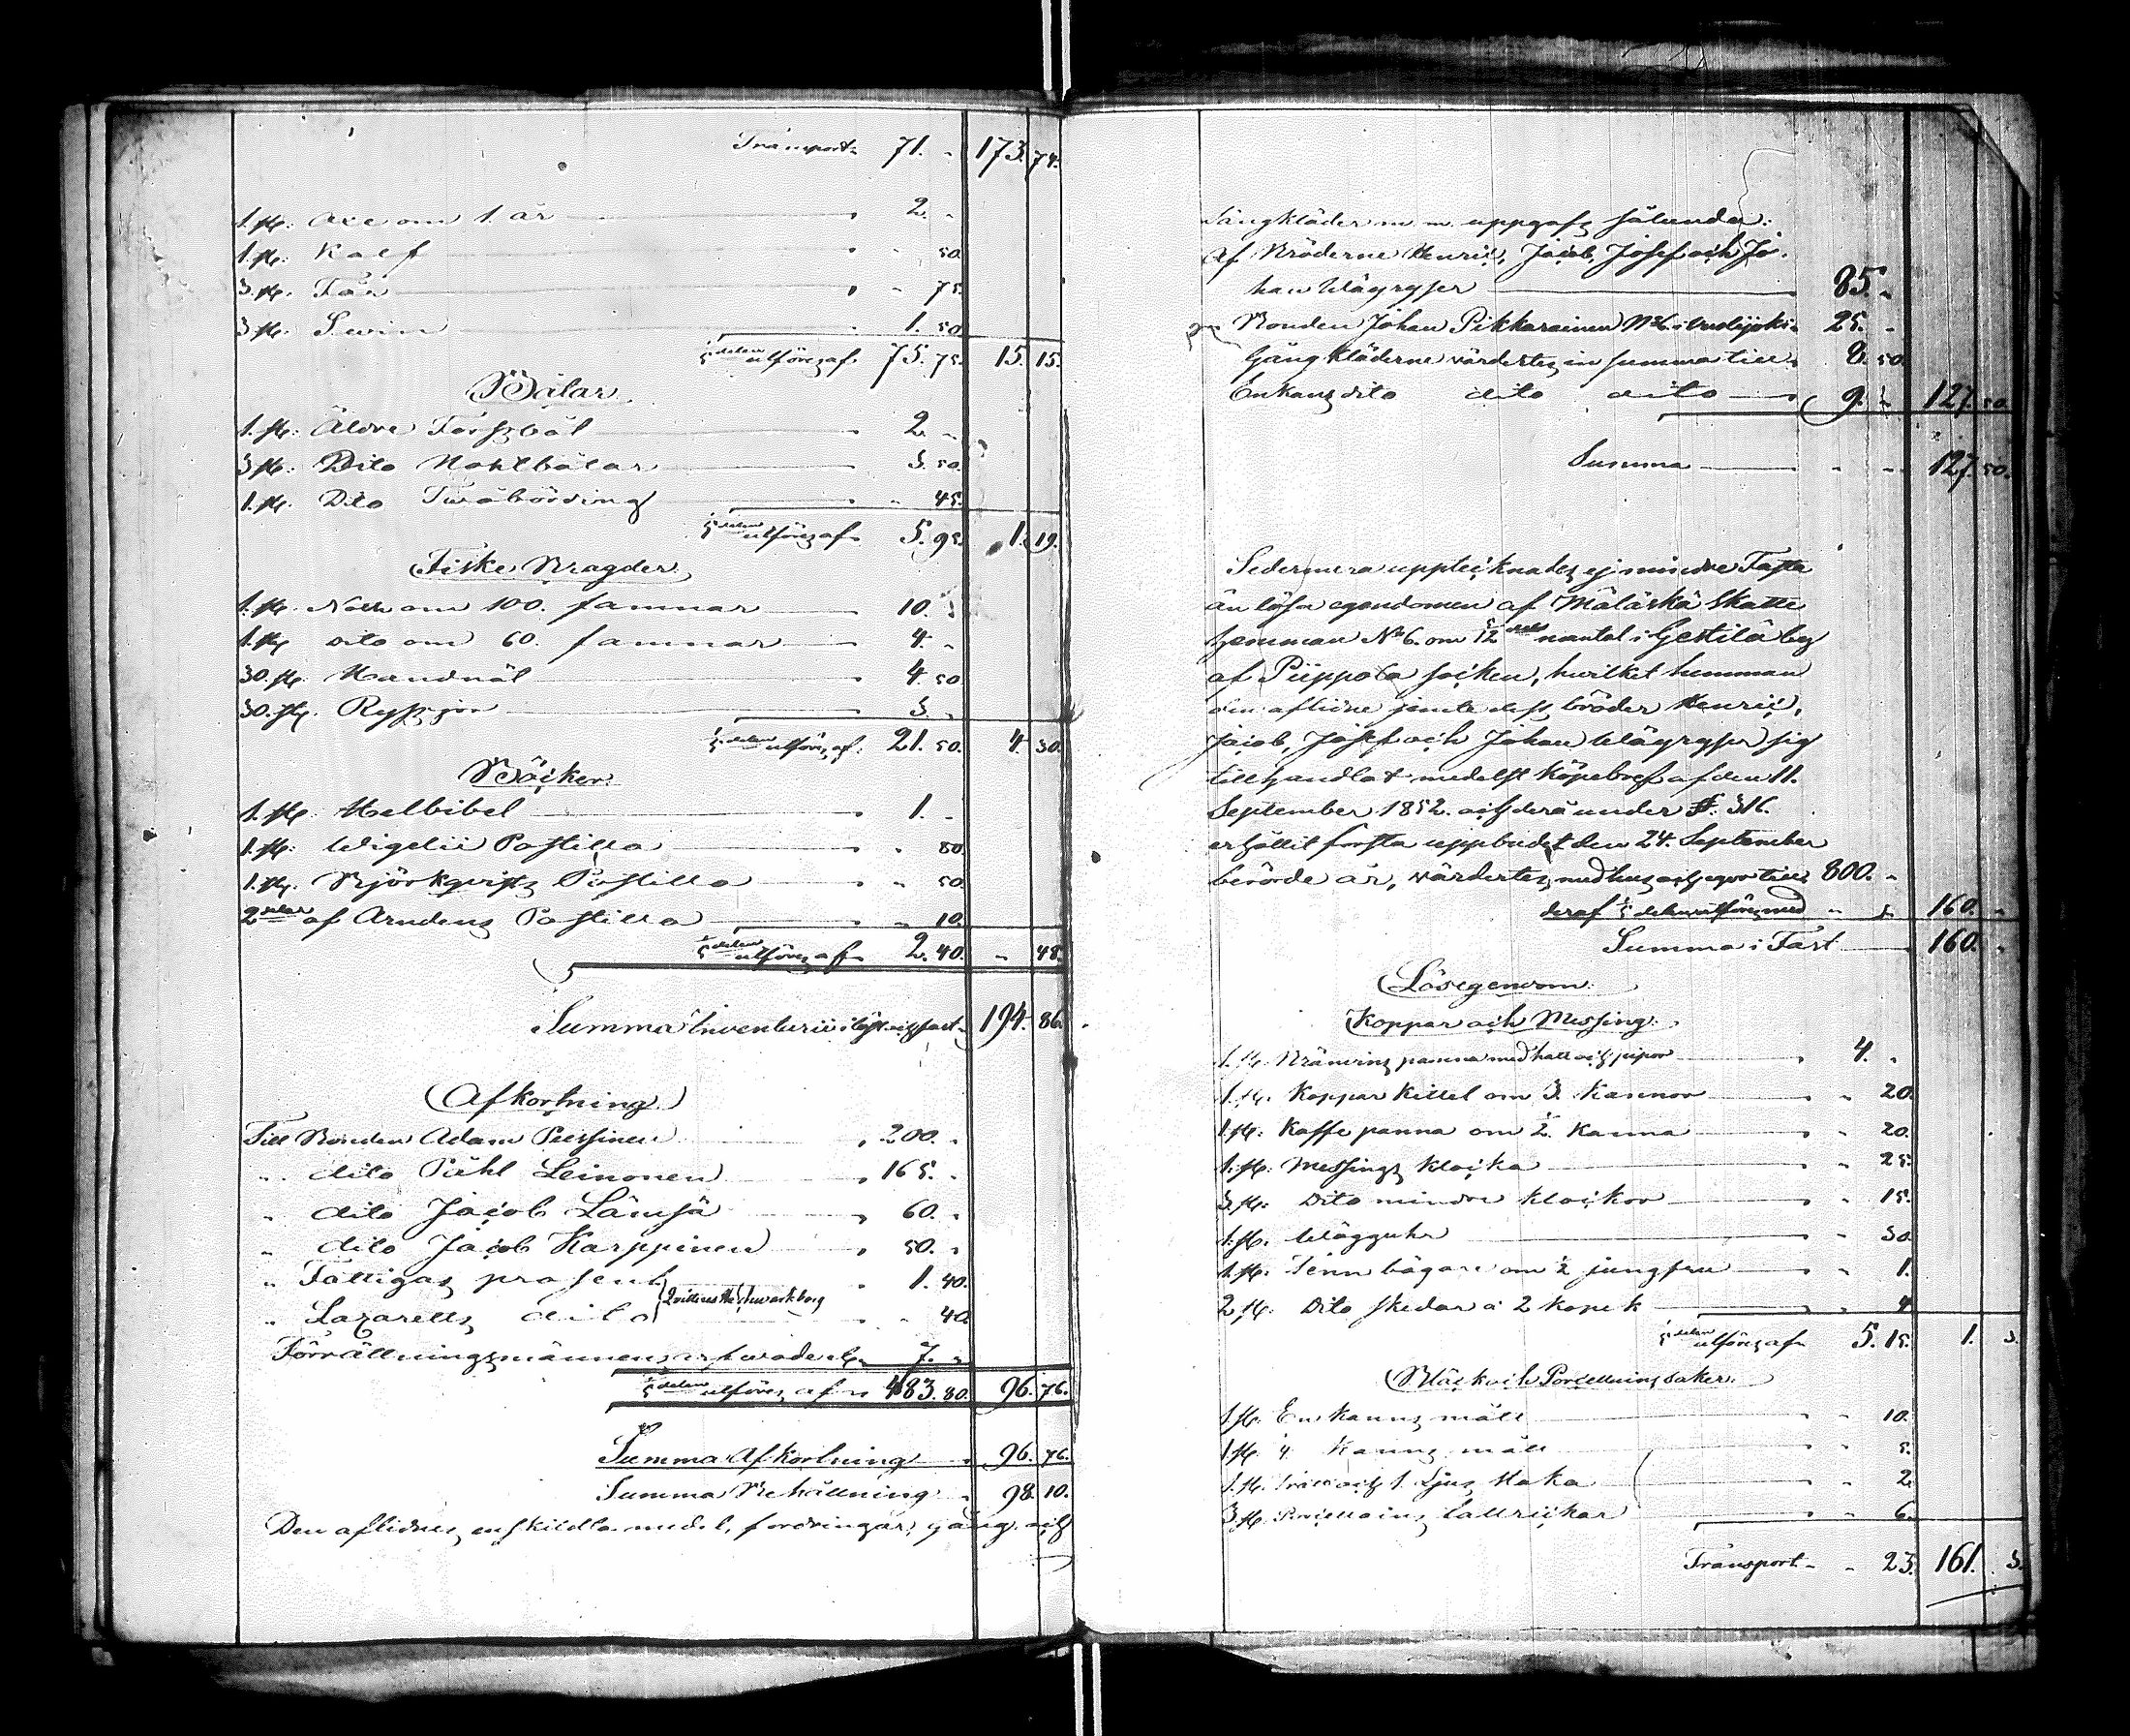 Transport 71. " 173. 74.
1. st. Oxe om 1. år " 2. "
1. st. Kalf " " 50.
3. st. Får " " 75.
3. st. Swin " 1. 50.
1/5 delen utföres af 75. 75. 15. 15.
Båtar.
1. st. Äldre Forssbåt " 2. "
3 st. Dito Nohtbåtar " 3. 50.
1. st. Dito Twåbörding " " 45.
1/5 delen utföres af 5. 95. 1. 19.
Fiske Bragder
1. st. Noth om 100. famnar 10. "
1. st. dito om 60. famnar 4. "
30. st. 4. 50.
30. st. Ryssjor 3. "
1/5 delen utföres af 21. 50. 4. 30.
Böcker
1. st. Helbibel 1. "
1. st. Wigelii Postilla " 80.
1. st. Björkqvists Postilla " 50.
2 delar af Arndens Postilla " 10.
1/5 delen utföres af 2. 40. " 48.
Summa Inventarii i löst och fast 194. 86.
Afkortning
Till Bonden Adam " 200. "
" dito Påhl Leinonen " 165. "
" dito Jacob Lämsä " 60. "
" dito Jacob Karppinen " 50. "
" Fattigas procent " 1. 40.
" Lazaretts dito " " 40
Förrättningsmännens arfwode 7. "
1/5 delen utföres af 483. 80. 96. 76.
Summa Afkortning 96. 76.
Summa Behållning 98. 10.
Den aflidnes enskildta medel, fordringar, gång och
Sängkläder m. m. uppgafs sålunda:
Af Bröderne Henric, Jacob, Josef och Jo-
han Wäyrynen 85. "
Bonden Johan Pikkarainen 25. "
Gångkläderne värdertes in summa till 8. 50.
Enkans dito dito dito 9. " 127. 50.
Summa " " 127. 50.
Sedermera upptecknades ej mindre Fasta
än lösa egendomen af Mäläskä Skatte
hemman No 6. om 5/12 dels mantal i Gestilä by
af Piippola socken, hwilket hemman
den aflidne jemte dess bröder Henric,
Jacob, Josef och Johan Wäyrynen sig
tillhandlat medelst Köpebref af den 11.
September 1852. och derå under §. 316.
erhållit första uppbudet den 24. September
berörde år, värdertes med hus och jord till 800. "
deraf 1/5 delen utföres med " " 160. "
Summa i Fast 160. "
Lösegendom.
Koppar och Messing.
1. st. Bränvins panna med hatt och pipor 4. "
1. st. Koppar Kittel om 3. Kannor " 20.
1 st. Kaffe panna om 1/2. Kanna " 20.
1. st. Messings Klocka " 25.
3. st. Dito mindre klockor " 15.
1. st. Wägguhr " 30
1. st. Tenn bägare om 1/2 jungfru " 1.
2 st. Dito skedar a 2 kopek " 4
1/5 delen utföres af 5. 15. 1. 3.
Bläck och Porcellains saker.
1 st. En Kanns mått " 10.
1 st. 1/4 Kanns mått " 5.
1. st. och 1. Ljus Staka " 2
3 st. Porcellains tallrickar " 6.
Transport " 23. 161. 3.